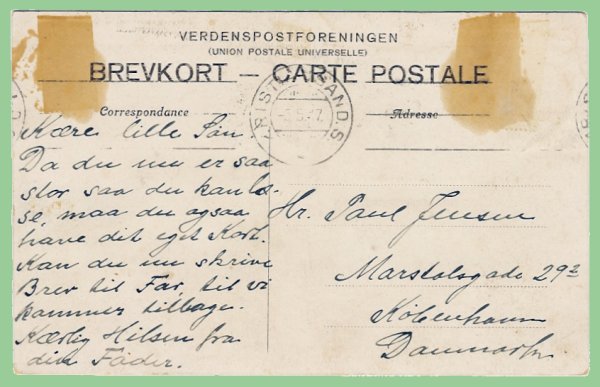 VERDENSPOSTFORENINGEN
(UNION POSTALE UNIVERSELLE)
BREVKORT — CARTE POSTALE
Correspondance
Adresse
Kære lille Søn.
Da du nu er saa
stor saa du kan læ-
se, maa du ogsaa
have dit eget Kort.
Kan du nu skrive
Brev til Far, til vi
kommer tilbage.
Kærlig Hilsen fra
din Fader.
Hr. Paul Jensen
Marstalsgade 29
København
Danmark